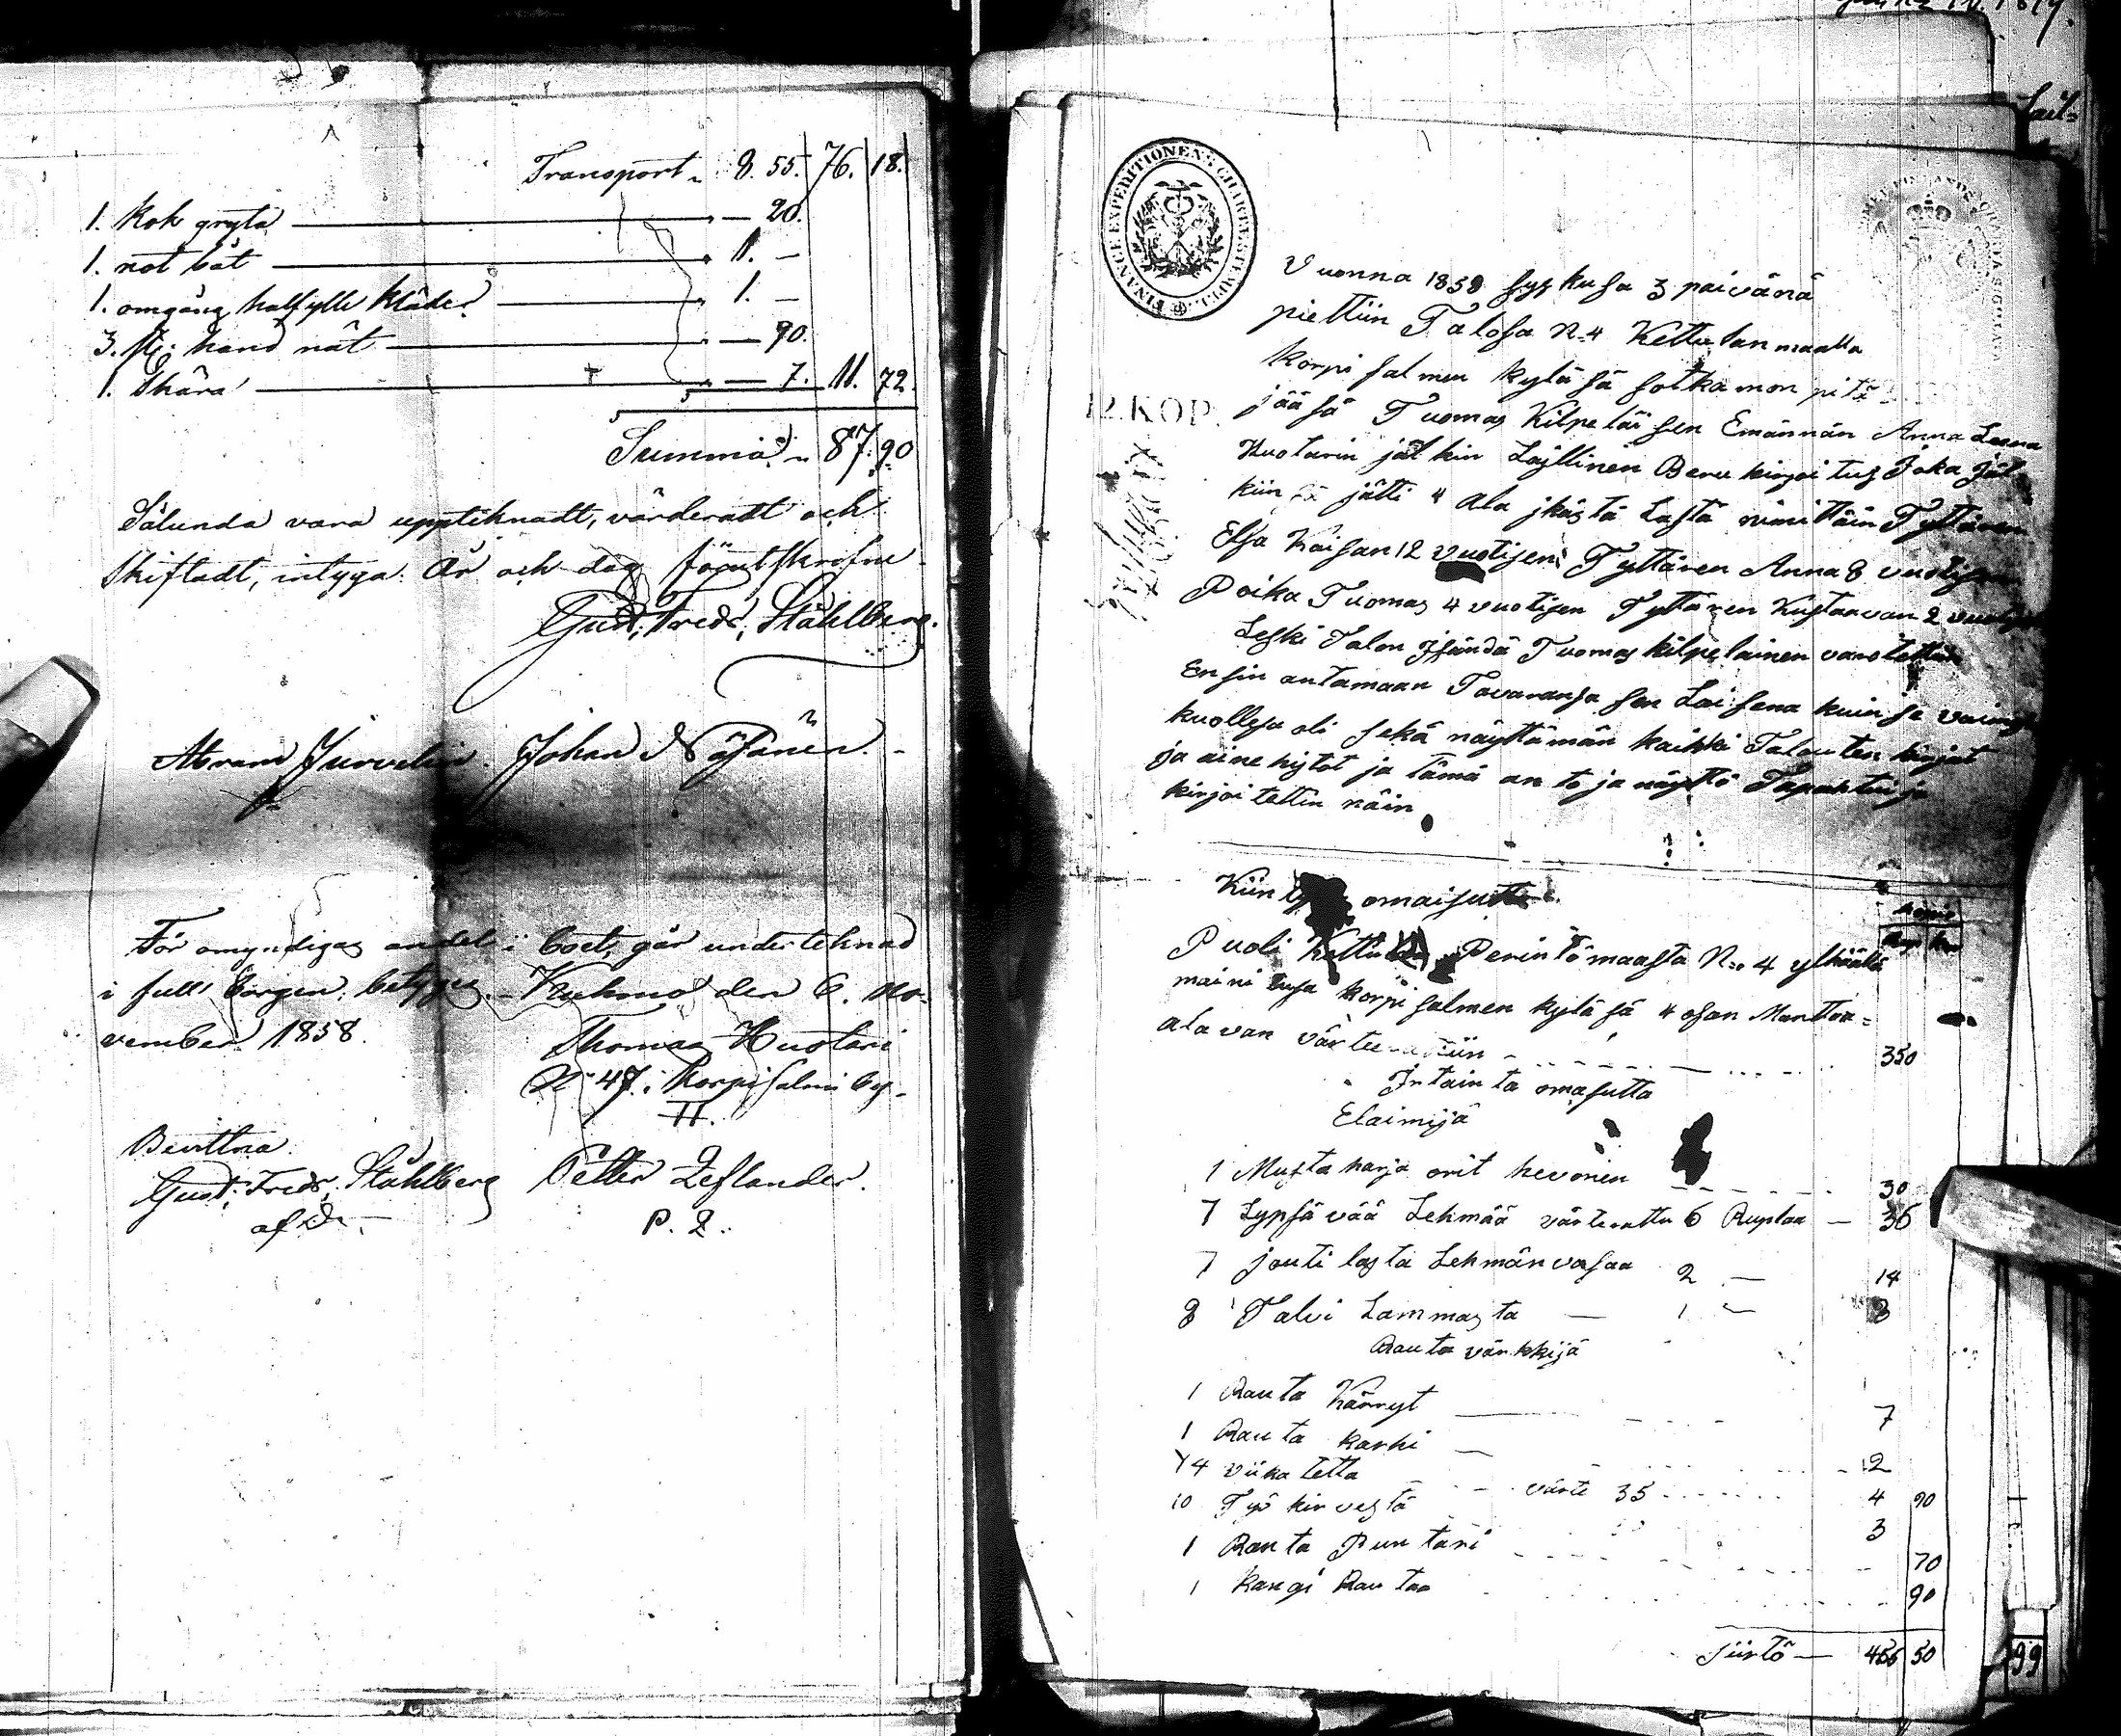 Transport 8. 55. 76. 18.
1. Kok gryta — 20.
1. not båt 11. —
1. omgång halfylle kläder 1. —
3. st. hand nät — 90.
1. Skära — 7. 11. 72.
Summa 87. 90
Sålunda vara upptéknadt, värderadt och
skiftadt, intyga. År och dag förutskrefne
Gust. Fredr. Ståhlberg.
Abram Jurvelin. Johan Näsänen
För omyndigas andel i boet, går undertéknad
i full borgen, betygas. Kuhmo den 6. No-
vember 1858.
Thomas Huotari
N 47. Korpisalmi by.
Bevittna
Gust. Fredr. Ståhlberg Petter Zeflander.
P. Z.
FINANCE EXPEDITIONENS CHARTÆ STEMPEL
12. KOP.
Vuonna 1858 syskusa 3 päivänä
piettiin Talosa N:4 Kettulanmaalla
Korpisalmen kylässä sotkamon pitä
jääsä Tuomas Kilpeläisen Emännän Anna Leena
Huotarin jälkin Lajllinen Beru kirjoitus Joka jäl
kiin jätti 4 ala jkästä Lasta nimittäin Tyttären
Elsa Kaisan 12 vuotisen Tyttären Anna 8 vuotisen
Poika Tuomas 4 vuotisen Tyttären Kustaavan 2 vuotisen
Leski Talon Jsändä Tuomas kilpelainen varotettiin
Ensin antamaan Tavaransa sen Laisena kuin se vaimon
kuollesa oli sekä näyttämän kaikki Talouten kirjat
ja aine histot ja tämä anto ja näyttö Tapahtui ja
kirjoitettin näin
Kiin omaisutta
Puoli Perintömaasta N:o 4 ylhäällä
maini tusa korpisalmen kyläsä 4 osan Manttoa=
ala van 350
Jrtainta omasutta
Elaimijä
1 Musta harja orit hevonen 30
7 Lypsävää Lehmää värterattu 6 Ruplaa — 36
7 jouti lasta Lehmän vasaa 2 — 14
8 Talvi Lammasta — 1 — 8
Rauta värkkijä
1 Rauta Kärryt 7
1 Rauta karhi 2
14 viikatetta värte 35 4 90
10 Työ kirvestä 3
1 Rauta Puntari 70
1 Kangi Rautaa 90
Siirtö — 456 50
99